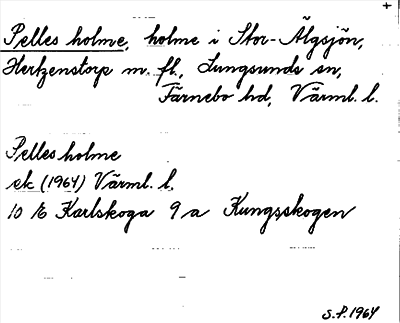 Pelles holme, holme i Stor-Älgsjön,
Hertzenstorp m. fl., Lungsunds sn,
Färnebo hd, Värml. l.
Pelles holme
ek (1964) Värml. l.
10 E Karlskoga 9 a Kungsskogen
S.P. 1964